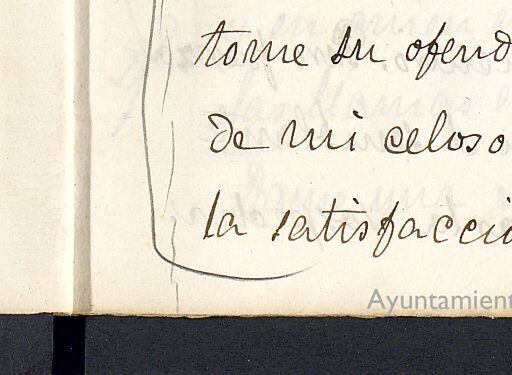 tome su ofend
de mi celoso
la satisfacci
Ayuntamient